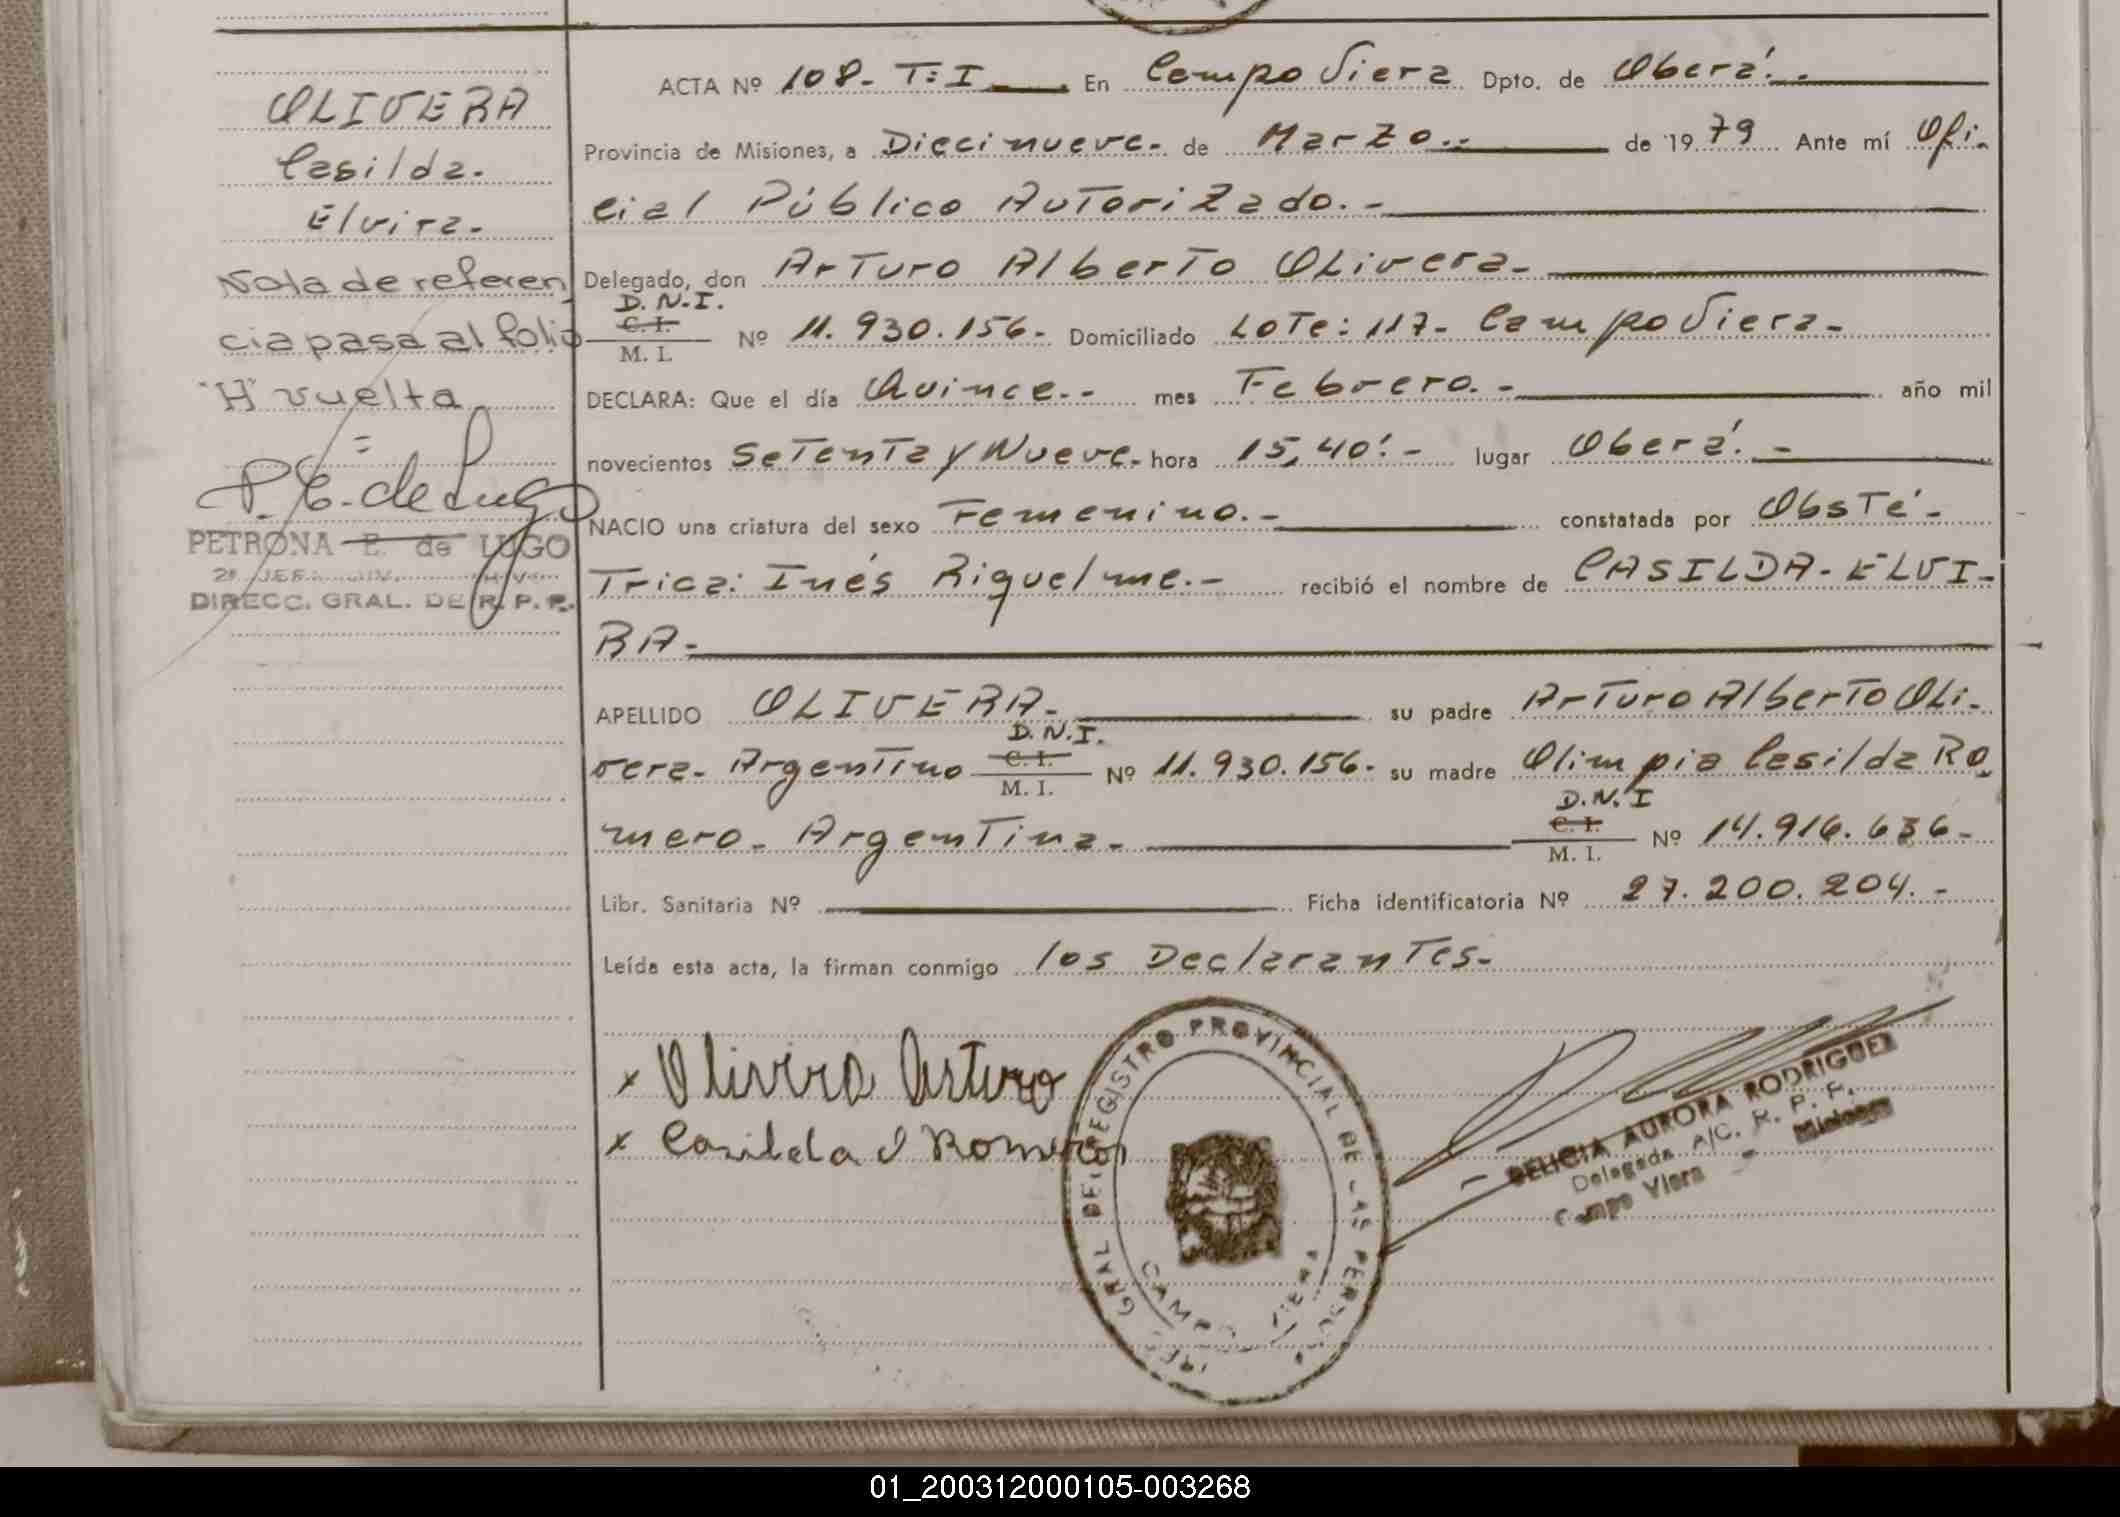 OLIVERA
Casilda.
Elvira.
Nota de referen
cia pasa al folio
"H" vuelta
P. E. de Lugo
PETRONA E. de LUGO
DIRECC. GRAL. DE R. P. P.
ACTA Nº 108- T: I En Campo Viera Dpto. de Oberá.-
Provincia de Misiones, a Diecinueve.- de Marzo.- de 1979 Ante mí Ofi-
cial Público Autorizado.-
Delegado, don Arturo Alberto Olivera-
D. N. I.
C. I.
M. I. Nº 11.930.156- Domiciliado Lote: 117- Campo Viera-
DECLARA: Que el día Quince.- mes Febrero.- año mil
novecientos Setenta y Nueve- hora 15,40'- lugar Oberá.-
NACIO una criatura del sexo Femenino.- constatada por Obsté-
trica: Inés Riquelme.- recibió el nombre de CASILDA-ELVI-
RA-
APELLIDO OLIVERA- su padre Arturo Alberto Oli-
D. N. I.
vera- Argentino C. I. M. I. Nº 11.930.156- su madre Olimpia Casilda Ro
D. N. I
mero- Argentina- C. I. M. I. Nº 14.916.636-
Libr. Sanitaria Nº Ficha identificatoria Nº 27.200.204.-
Leída esta acta, la firman conmigo los Declarantes-
x Olivera Arturo
x Casilda O Romero
GRAL DEL REGISTRO PROVINCIAL DE LAS PERSONAS
CAMPO VIERA
DELICIA AURORA RODRIGUEZ
Delegada A/C. R. P. P.
Campo Viera - Misiones
01_200312000105-003268